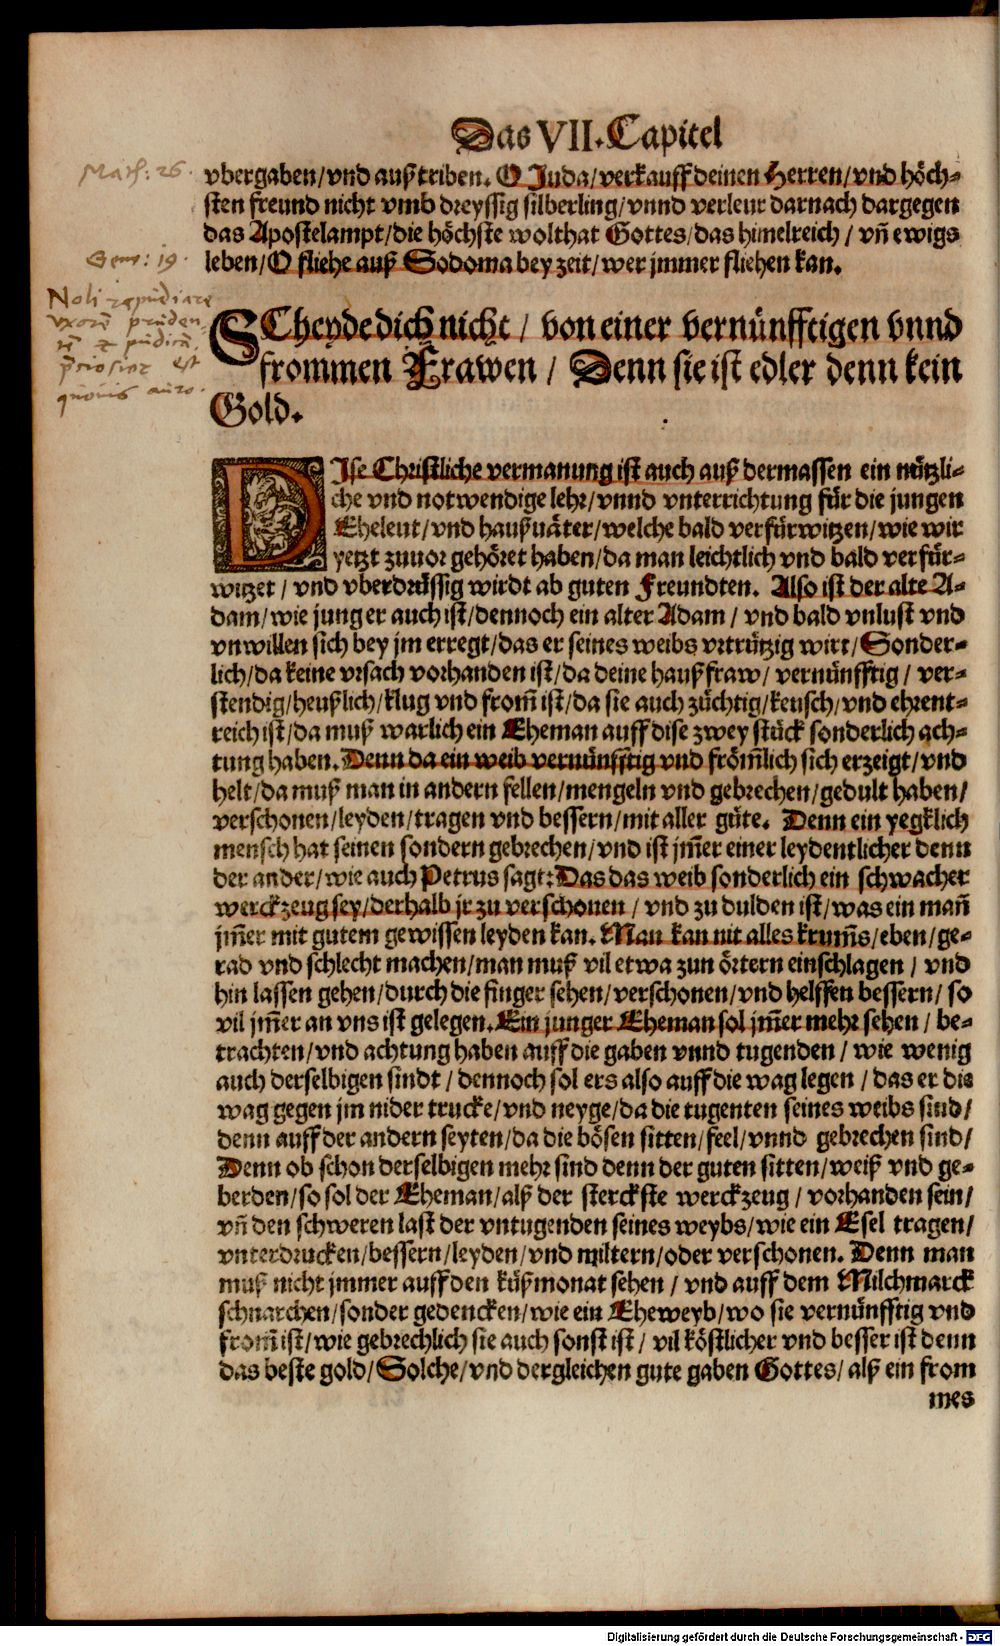 Das VII. Capitel
Math: 26.
vbergaben/vnd außtriben. O Juda/verkauff deinen Herren/vnd höch-
sten freund nicht vmb dreyssig silberling/vnnd verleur darnach dargegen
das Apostelampt/die höchste wolthat Gottes/das himelreich / vñ ewigs
Gene: 19.
leben/O fliehe auß Sodoma bey zeit/wer jmmer fliehen kan.
Noli repudiare
vxorē pruden-
tē & pudicā,
p̄ciosior est
quouis auro.
SCheyde dich nicht / von einer vernünfftigen vnnd
frommen Frawen / Denn sie ist edler denn kein
Gold.
DIse Christliche vermanung ist auch auß dermassen ein nützli-
che vnd notwendige lehr/vnnd vnterrichtung für die jungen
Eheleut/vnd haußuäter/welche bald verfürwitzen/wie wir
yetzt zuuor gehöret haben/da man leichtlich vnd bald verfür-
witzet / vnd vberdrüssig wirdt ab guten Freundten. Also ist der alte A-
dam/wie jung er auch ist/dennoch ein alter Adam / vnd bald vnlust vnd
vnwillen sich bey jm erregt/das er seines weibs vrtrützig wirt/Sonder-
lich/da keine vrsach vorhanden ist/da deine haußfraw/ vernünfftig / ver-
stendig/heußlich/klug vnd from̃ ist/da sie auch züchtig/keusch/vnd ehrent-
reich ist/da muß warlich ein Eheman auff dise zwey stück sonderlich ach-
tung haben. Denn da ein weib vernünfftig vnd fröm̃lich sich erzeigt/vnd
helt/da muß man in andern fellen/mengeln vnd gebrechen/gedult haben/
verschonen/leyden/tragen vnd bessern/mit aller güte. Denn ein yegklich
mensch hat seinen sondern gebrechen/vnd ist jm̃er einer leydentlicher denn
der ander/wie auch Petrus sagt: Das das weib sonderlich ein schwacher
werckzeug sey/derhalb jr zu verschonen / vnd zu dulden ist/was ein mañ
jm̃er mit gutem gewissen leyden kan. Man kan nit alles krum̃s/eben/ge-
rad vnd schlecht machen/man muß vil etwa zun örtern einschlagen / vnd
hin lassen gehen/durch die finger sehen/verschonen/vnd helffen bessern/ so
vil jm̃er an vns ist gelegen. Ein junger Eheman sol jm̃er mehr sehen / be-
trachten/vnd achtung haben auff die gaben vnnd tugenden / wie wenig
auch derselbigen sindt / dennoch sol ers also auff die wag legen / das er die
wag gegen jm nider trucke/vnd neyge/da die tugenten seines weibs sind/
denn auff der andern seyten/da die bösen sitten/feel/vnnd gebrechen sind/
Denn ob schon derselbigen mehr sind denn der guten sitten/weiß vnd ge-
berden/so sol der Eheman/alß der sterckste werckzeug / vorhanden sein/
vñ den schweren last der vntugenden seines weybs/wie ein Esel tragen/
vnterdrucken/bessern/leyden/vnd miltern/oder verschonen. Denn man
muß nicht jmmer auff den küßmonat sehen / vnd auff dem Milchmarck
schnarchen/sonder gedencken/wie ein Eheweyb/wo sie vernünfftig vnd
from̃ ist/wie gebrechlich sie auch sonst ist / vil köstlicher vnd besser ist denn
das beste gold/Solche/vnd dergleichen gute gaben Gottes/alß ein from
mes
Digitalisierung gefördert durch die Deutsche Forschungsgemeinschaft - DFG